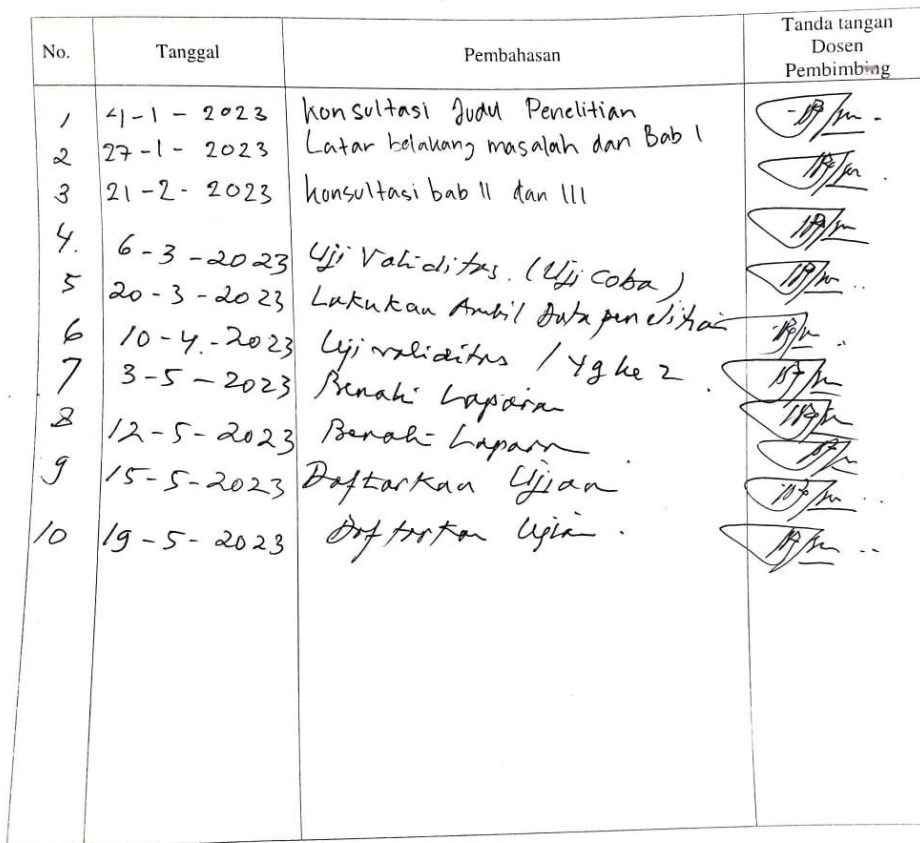 No. Tanggal Pembahasan Tanda tangan
Dosen
Pembimbing
1 4-1-2023 Konsultasi Judul Penelitian
2 27-1-2023 Latar belakang masalah dan Bab I
3 21-2-2023 Konsultasi bab II dan III
4. 6-3-2023 Uji Validitas. (Uji Coba)
5 20-3-2023 Lakukan Ambil Data penelitian
6 10-4-2023 Uji validitas / yg ke 2
7 3-5-2023 Benahi Laporan
8 12-5-2023 Benahi Laporan
9 15-5-2023 Daftarkan Ujian
10 19-5-2023 Daftarkan Ujian.